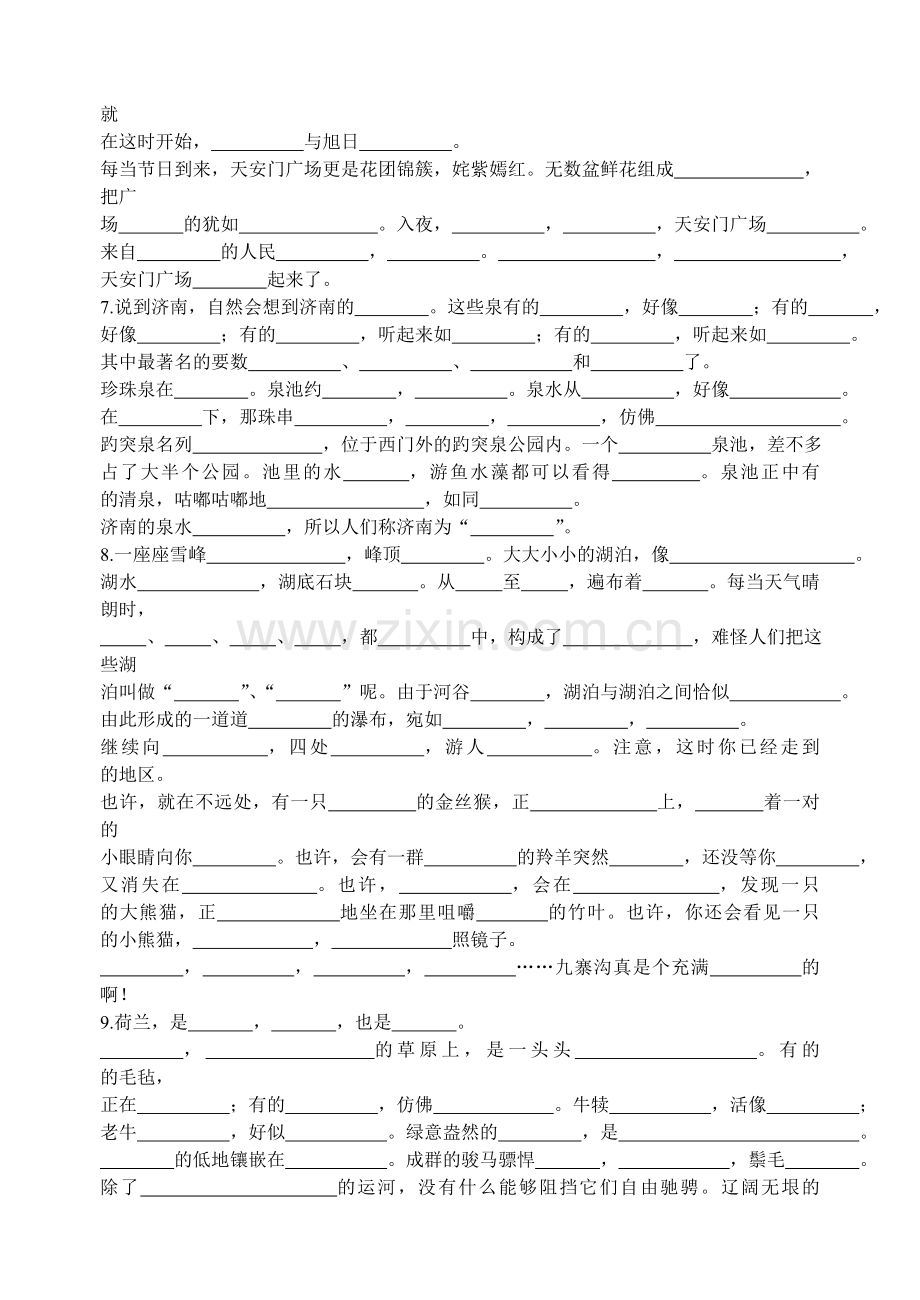 就
在这时开始，__________与旭日__________。
每当节日到来，天安门广场更是花团锦簇，姹紫嫣红。无数盆鲜花组成______________，
把广
场_______的犹如_______________。入夜，__________，__________，天安门广场__________。
来自_________的人民__________，__________。_________________，__________________，
天安门广场________起来了。
7.说到济南，自然会想到济南的________。这些泉有的_________，好像________；有的_______，
好像_________；有的_________，听起来如_________；有的_________，听起来如_________。
其中最著名的要数__________、__________、___________和__________了。
珍珠泉在________。泉池约________，__________。泉水从__________，好像____________。
在_________下，那珠串__________，_________，__________，仿佛____________________。
趵突泉名列______________，位于西门外的趵突泉公园内。一个__________泉池，差不多
占了大半个公园。池里的水_______，游鱼水藻都可以看得_________。泉池正中有
的清泉，咕嘟咕嘟地_________________，如同__________。
济南的泉水__________，所以人们称济南为“_________”。
8.一座座雪峰_______________，峰顶_________。大大小小的湖泊，像____________________。
湖水_____________，湖底石块_______。从_____至_____，遍布着_______。每当天气晴
朗时，
_____、_____、_____、_____，都__________中，构成了______________，难怪人们把这
些湖
泊叫做“_______”、“_______”呢。由于河谷________，湖泊与湖泊之间恰似____________。
由此形成的一道道_________的瀑布，宛如_________，_________，__________。
继续向___________，四处__________，游人___________。注意，这时你已经走到
的地区。
也许，就在不远处，有一只_________的金丝猴，正_____________上，_______着一对
的
小眼睛向你_________。也许，会有一群__________的羚羊突然________，还没等你_________，
又消失在______________。也许，____________，会在_______________，发现一只
的大熊猫，正_____________地坐在那里咀嚼_______的竹叶。也许，你还会看见一只
的小熊猫，_____________，_____________照镜子。
_________，__________，__________，__________……九寨沟真是个充满__________的
啊！
9.荷兰，是_______，_______，也是_______。
_________，__________________的草原上，是一头头____________________。有的
的毛毡，
正在__________；有的__________，仿佛_____________。牛犊___________，活像__________；
老牛__________，好似____________。绿意盎然的_________，是__________________________。
________的低地镶嵌在____________。成群的骏马骠悍_______，____________，鬃毛________。
除了_____________________的运河，没有什么能够阻挡它们自由驰骋。辽阔无垠的
www.zixin.com.cn